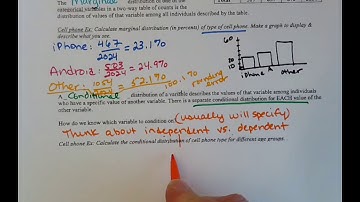 The Marginal distribution of one of the
categorical variables in a two-way table of counts is the
distribution of values of that variable among all individuals described by the table.
Cell phone Ex: Calculate marginal distribution (in percents) of type of cell phone. Make a graph to display &
describe what you see.
iPhone: 467/2024 = 23.1%
Android: 503/2024 = 24.9%
Other: 1054/2024 = 52.1%
100.1% rounding error
60
20
10
iPhone A other
A Conditional distribution of a variable describes the values of that variable among individuals
who have a specific value of another variable. There is a separate conditional distribution for EACH value of the
other variable.
How do we know which variable to condition on (usually will specify)
Think about independent vs. dependent
Cell phone Ex: Calculate the conditional distribution of cell phone type for different age groups.